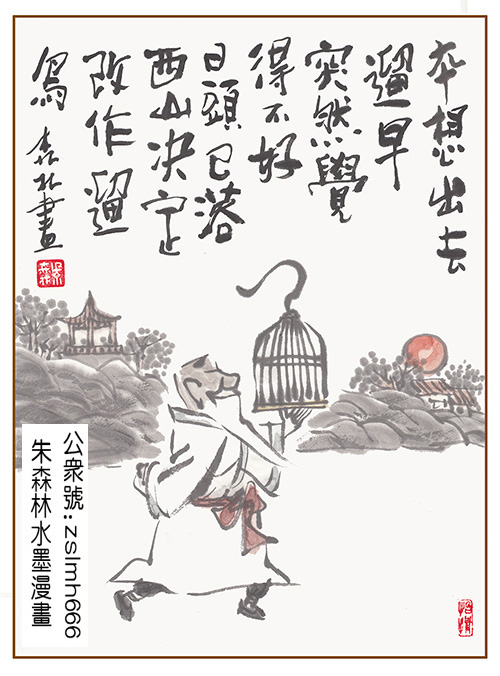 本想出去
遛早
突然覺
得不好
日頭已落
西山决定
改作遛
鳥 森林畫
公衆號:zslmh666
朱森林水墨漫畫